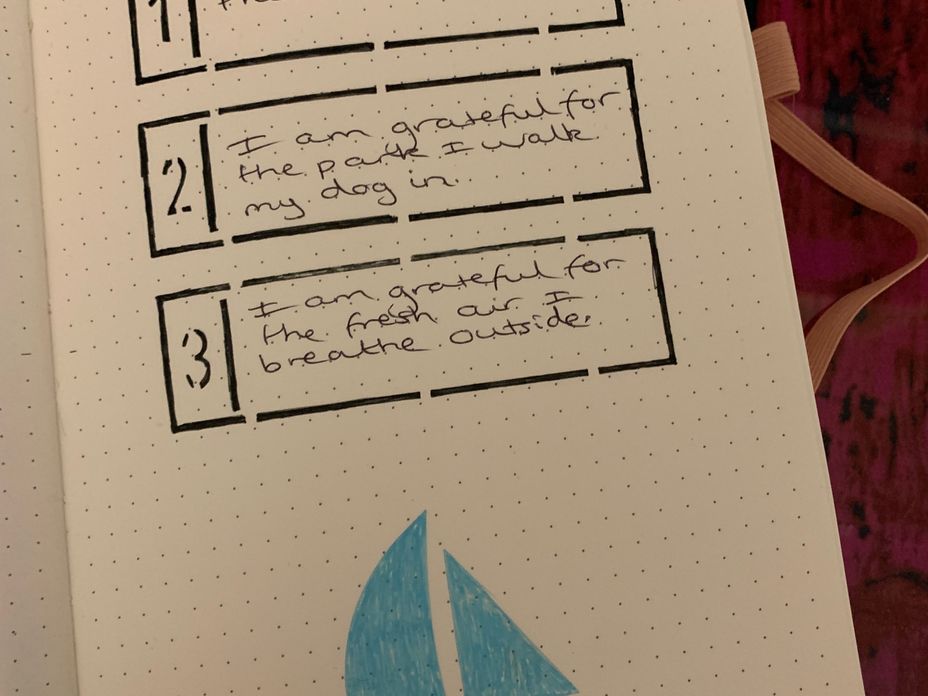 1
2
I am grateful for
the park I walk
my dog in.
3
I am grateful for
the fresh air I
breathe outside.